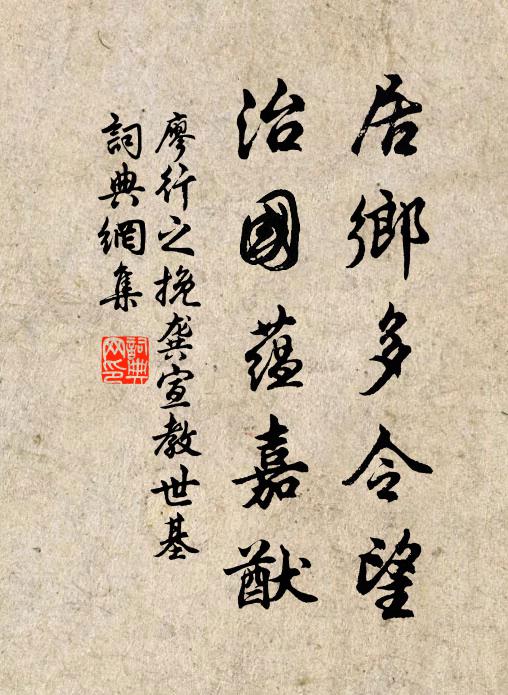 居鄉多令望
治國蘊嘉猷
廖行之挽龔宣教世基
詞典網集
詞典网印